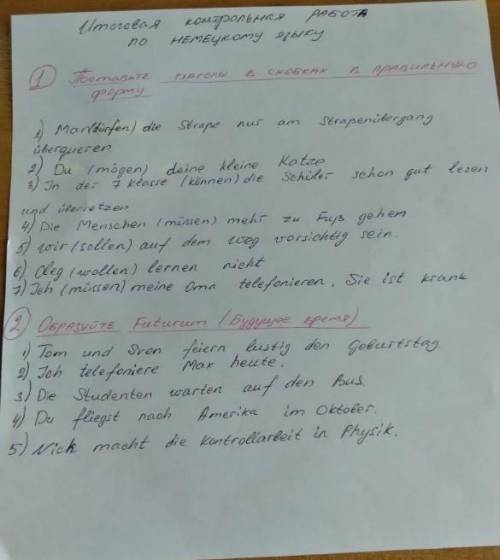 Итоговая контрольная работа
по немецкому языку
① Поставьте глаголы в скобках в правильную
форму
1) Man(dürfen) die Straße nur am Straßenübergang
überqueren
2) Du (mögen) deine kleine Katze
3) In der 7 klasse (können) die Schüler schon gut lesen
und übersetzen
4) Die Menschen (müssen) mehr zu Fuß gehen
5) Wir (sollen) auf dem Weg vorsichtig sein.
6) Oleg (wollen) lernen nicht
7) Ich (müssen) meine Oma telefonieren. Sie ist krank
② Образуйте Futurum (Будущее время)
1) Tom und Sven feiern lustig den Geburtstag
2) Ich telefoniere Max heute.
3) Die Studenten warten auf den Bus.
4) Du fliegst nach Amerika im Oktober.
5) Nick macht die Kontrollarbeit in Physik.